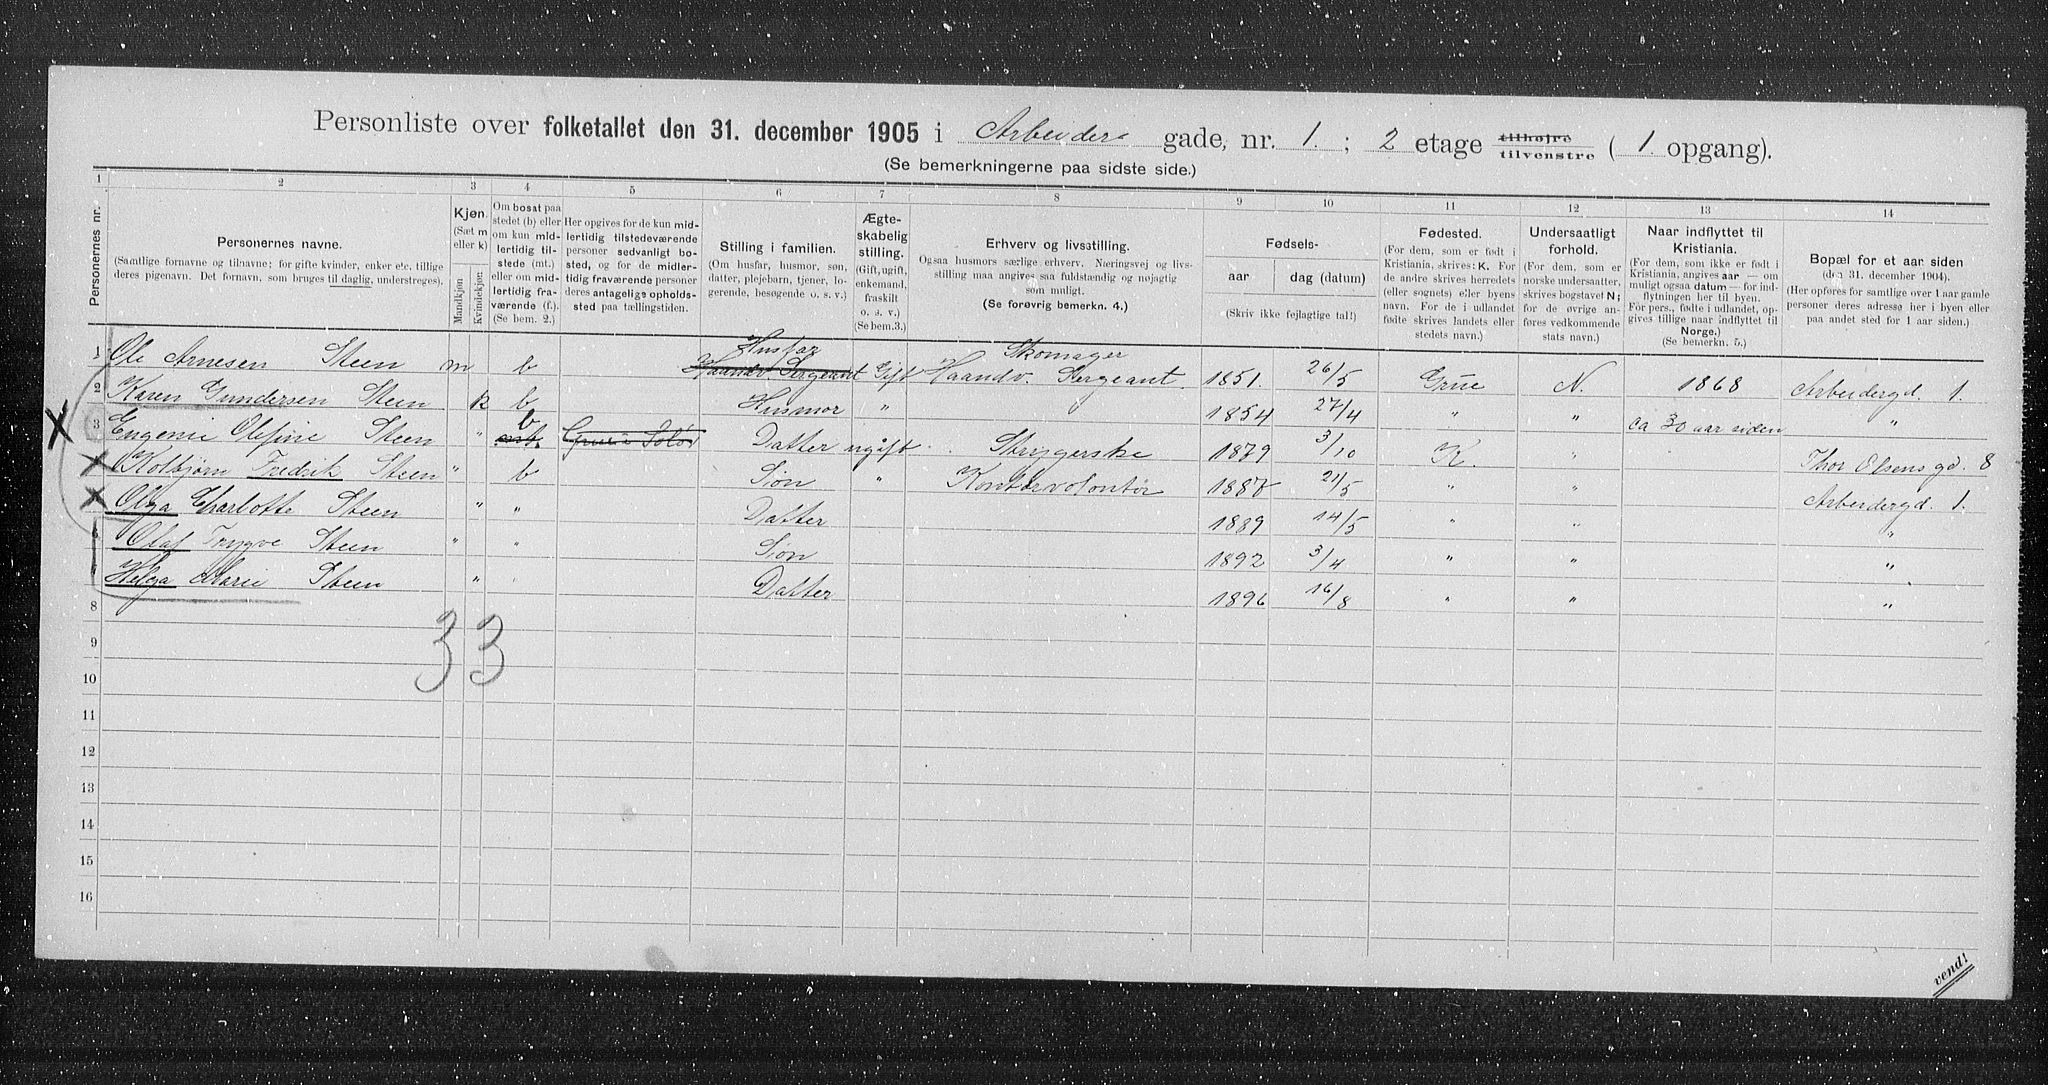 Personliste over folketallet den 31. december 1905 i Arbeider gade, nr. 1. ; 2 etage tilhøjre tilvenstre ( 1 opgang).
(Se bemerkningerne paa sidste side.)
1 2 3 4 5 6 7 8 9 10 11 12 13 14
Personernes nr.
Personernes navne.
(Samtlige fornavne og tilnavne; for gifte kvinder, enker etc. tillige
deres pigenavn. Det fornavn, som bruges til daglig, understreges).
Kjøn.
(Sæt m
eller k)
Mandkjøn.
Kvindekjøn.
Om bosat paa
stedet (b) eller
om kun mid-
lertidig til-
stede (mt.)
eller om mid-
lertidig fra-
værende (f.).
(Se bem. 2.)
Her opgives for de kun mid-
lertidig tilstedeværende
personer sedvanligt bo-
sted, og for de midler-
tidig fraværende personer
deres antagelige opholds-
sted paa tællingstiden.
Stilling i familien.
(Om husfar, husmor, søn,
datter, plejebarn, tjener, lo-
gerende, besøgende o. s. v.)
Ægte-
skabelig
stilling.
(Gift, ugift,
enkemand,
fraskilt
o. s. v.)
(Se bem. 3.)
Erhverv og livsstilling.
Ogsaa husmors særlige erhverv. Næringsvej og livs-
stilling maa angives saa fuldstændig og nøjagtig
som muligt.
(Se forøvrig bemerkn. 4.)
Fødsels-
aar
dag (datum)
(Skriv ikke fejlagtige tal!)
Fødested.
(For dem, som er født i
Kristiania, skrives: K. For
de andre skrives herredets
(eller sognets) eller byens
navn. For de i udlandet
fødte skrives landets eller
stedets navn.)
Undersaatligt
forhold.
(For dem, som er
norske undersaatter,
skrives bogstavet N;
for de øvrige an-
føres vedkommende
stats navn.)
Naar indflyttet til
Kristiania.
(For dem, som ikke er født i
Kristiania, angives aar — om
muligt ogsaa datum — for ind-
flytningen her til byen.
For pers., fødte i udlandet, op-
gives tillige naar indflyttet til
Norge.)
(Se bemerkn. 5.)
Bopæl for et aar siden
(den 31. december 1904).
(Her opføres for samtlige over 1 aar gamle
personer deres adresse her i byen eller
paa andet sted for 1 aar siden.)
Husfar Skomager
1 Ole Arnesen Steen m b Haandv. Sergeant Gift Haandv. Sergeant. 1851. 26/5 Grue N. 1868 Arbeidergd. 1.
2 Karen Gundersen Steen k b Husmor " 1854 27/4 " " ca 30 aar siden "
3 Eugenie Olefine Steen " b mt. Grue i Solør Datter ugift Strygerske 1879 3/10 K. " Thor Olsens gd. 8
Kolbjørn Fredrik Steen " b Søn " Kontorvolontør 1887 21/5 " " Arbeidergd. 1.
Olga Charlotte Steen " " Datter 1889 14/5 " " "
Olaf Trygve Steen " " Søn 1892 3/4 " " "
Helga Marie Steen " " Datter 1896 16/8 " " "
8
33
9
10
11
12
13
14
15
16
vend!